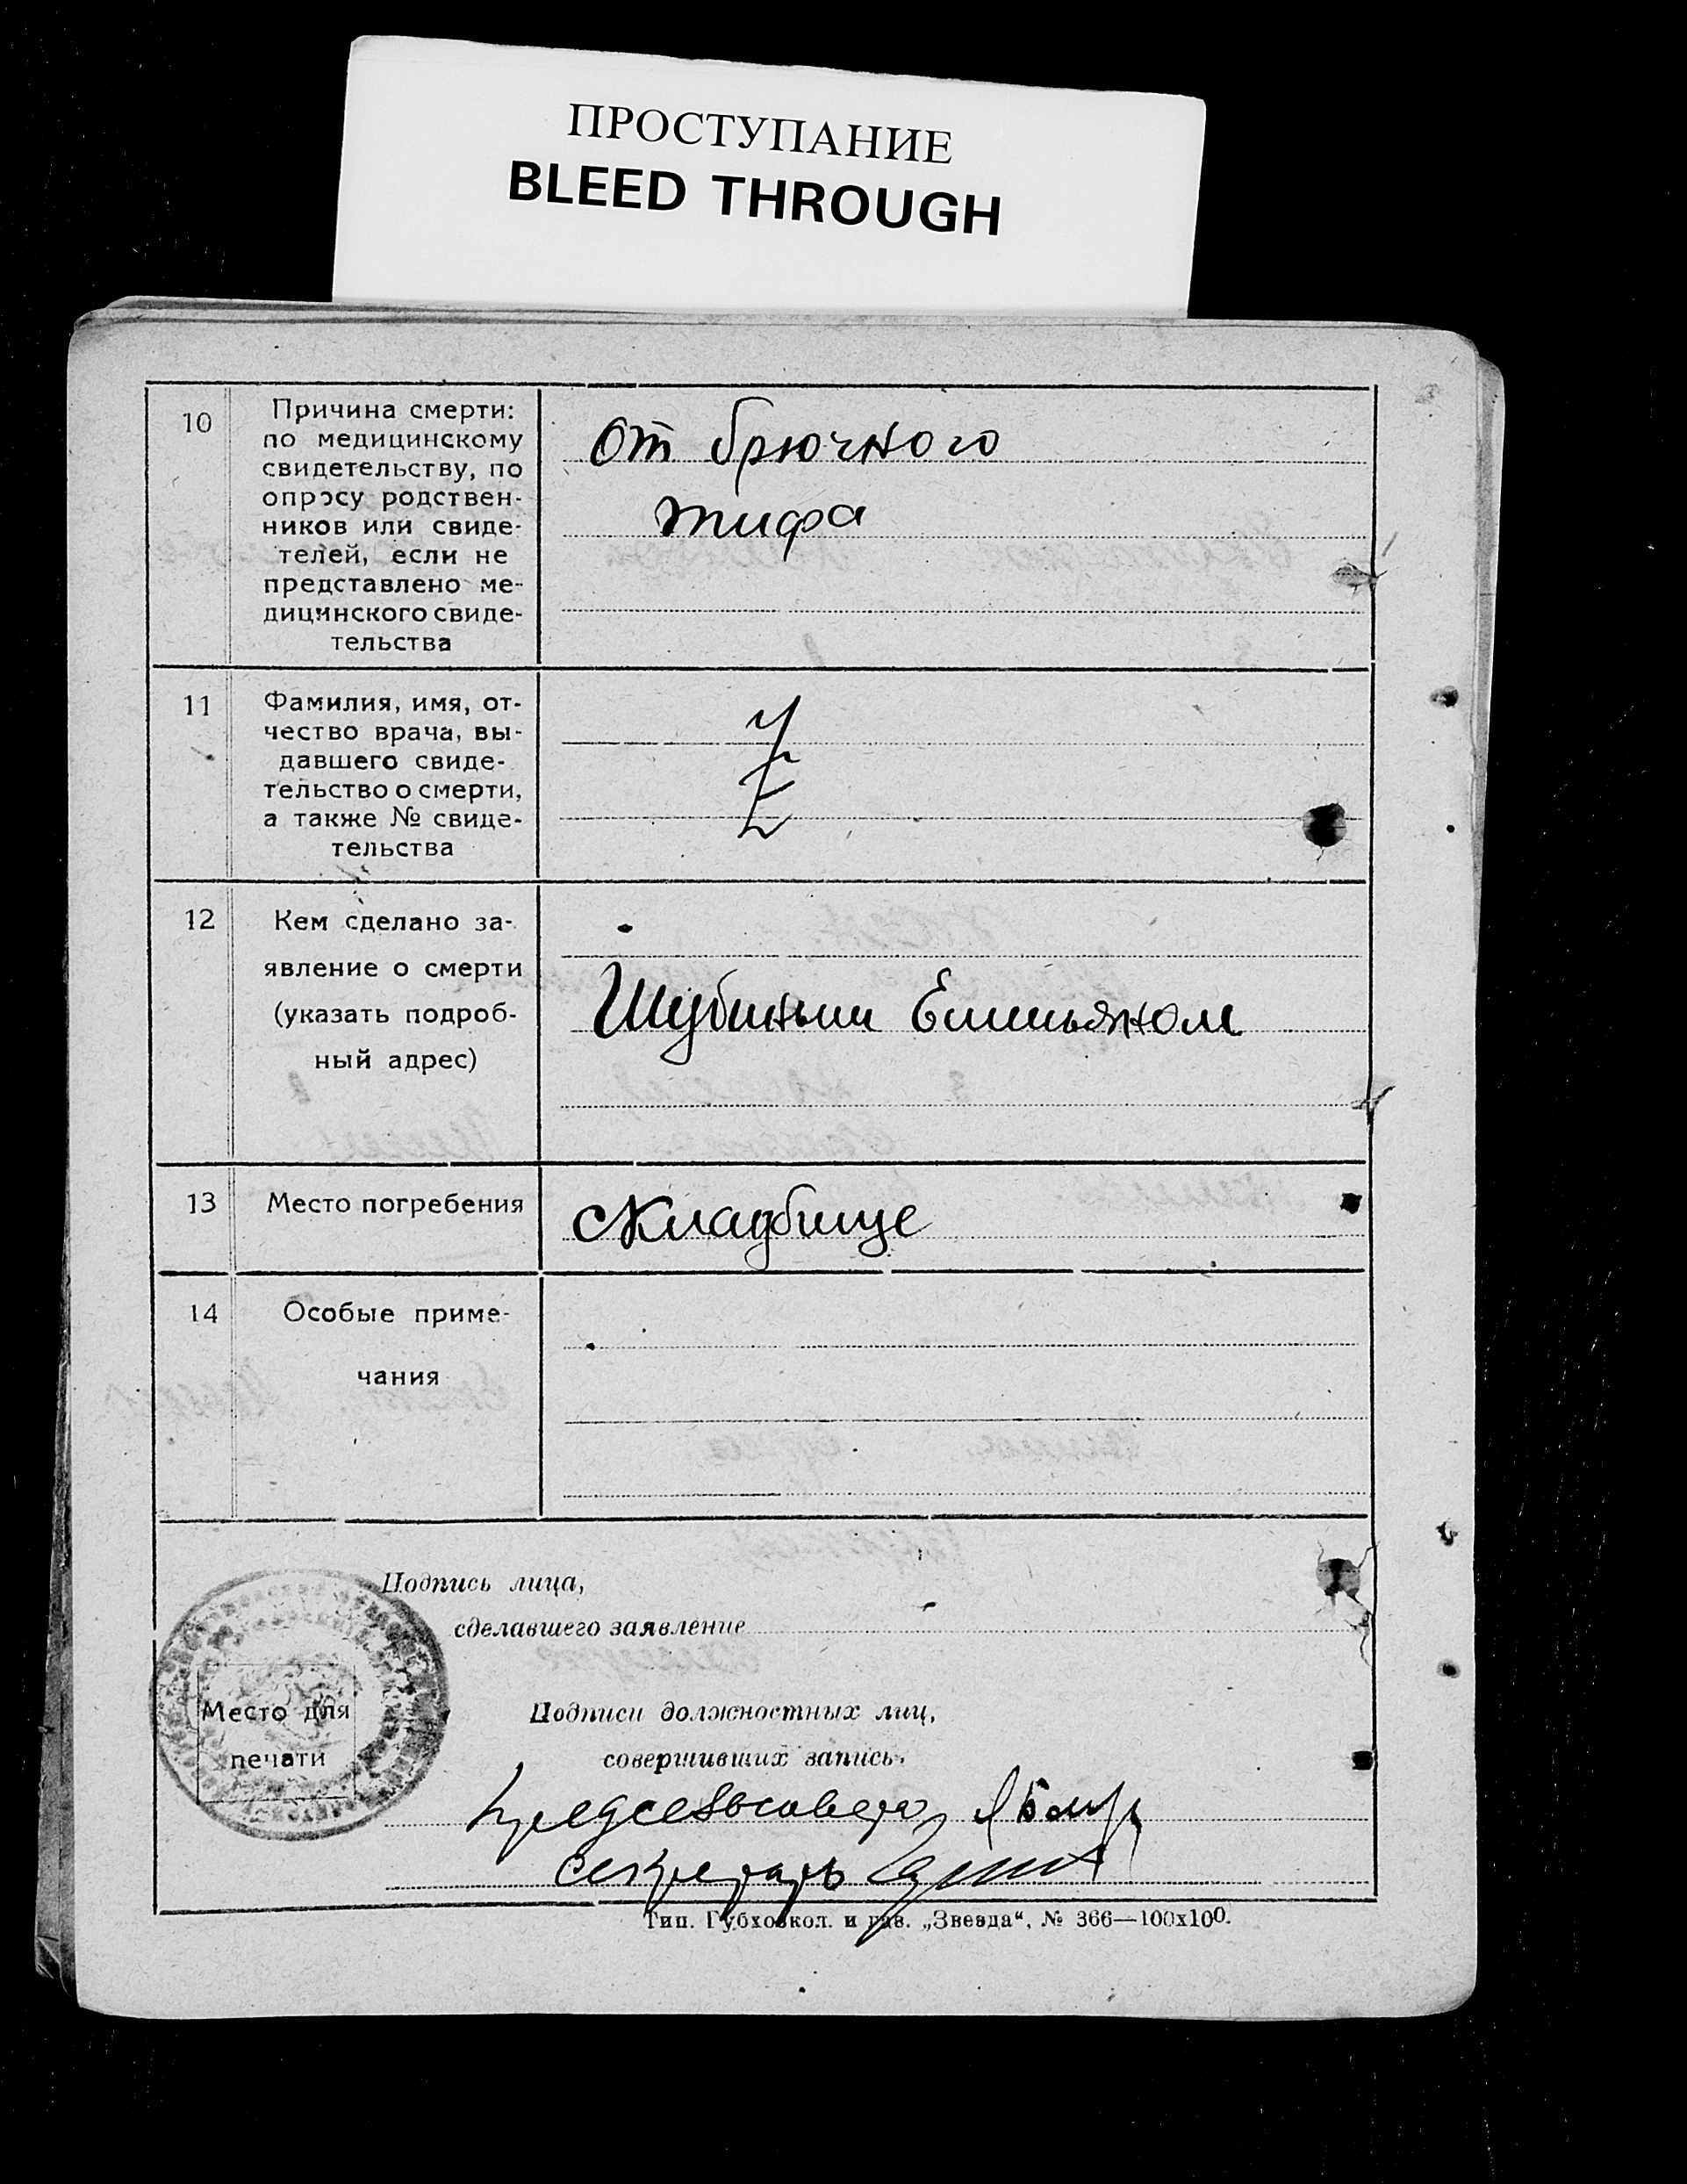 ПРОСТУПАНИЕ
BLEED THROUGH
10
Причина смерти:
по медицинскому
свидетельству, по
опросу родствен-
ников или свиде-
телей, если не
представлено ме-
дицинского свиде-
тельства
от брючного
тифа
11
Фамилия, имя, от-
чество врача, вы-
давшего свиде-
тельство о смерти,
а также № свиде-
тельства
12
Кем сделано за-
явление о смерти
(указать подроб-
ный адрес)
Шубиным Емельяном
13
Место погребения
Кладбище
14
Особые приме-
чания
Подпись лица,
сделавшего заявление
Место для
печати
Подписи должностных лиц,
совершивших запись.
Предсельсовета
Секретарь
Тип. Губховкол. и газ. „Звезда“, № 366—100х100.